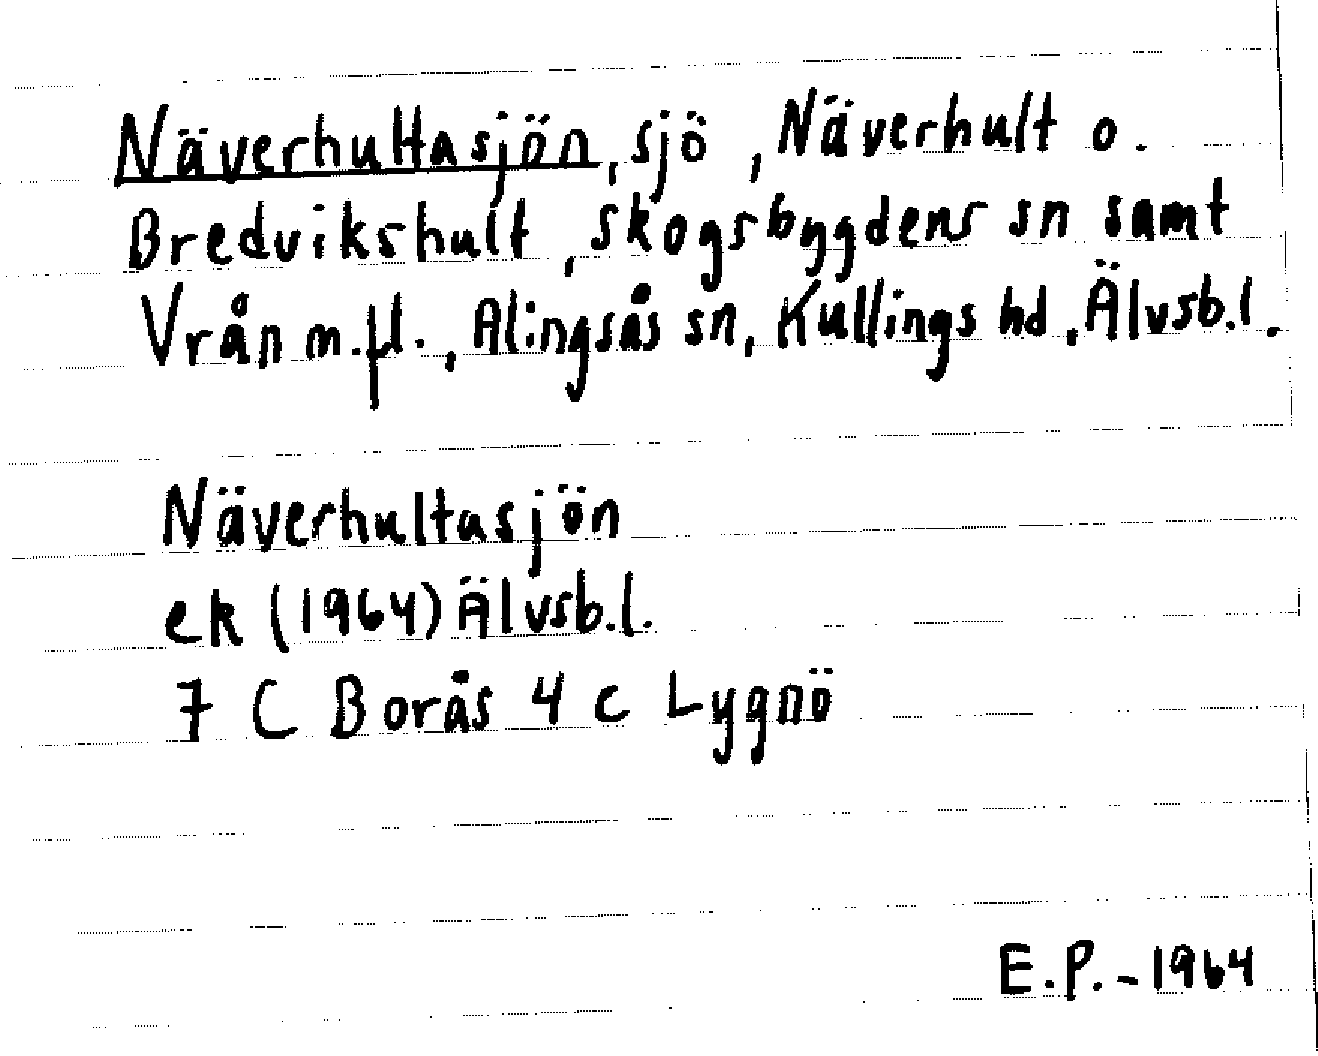 Näverhultasjön, sjö, Näverhult o.
Bredvikshult, Skogsbygdens sn samt
Vrån m.fl., Alingsås sn, Kullings hd, Älvsb.l.
Näverhultasjön
ek (1964) Älvsb.l.
7 C Borås 4 c Lygnö
E.P. - 1964